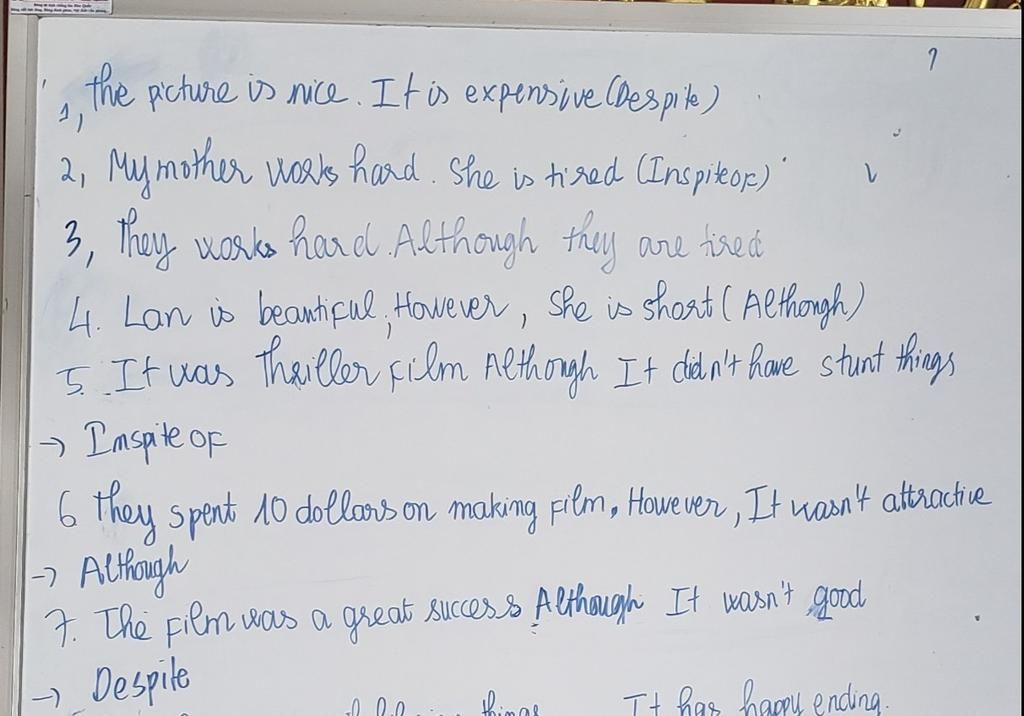 1, the picture is nice. It is expensive (Despite)
2, My mother works hard. She is tired (Inspiteof)
3, They works hard. Although they are tired
4. Lan is beautiful, However, She is short (Although)
5. It was thriller film Although It didn't have stunt things
→ Inspite of
6 They spent 10 dollars on making film, However, It wasn't attractive
→ Although
7. The film was a great success Although It wasn't good
→ Despite
things It has happy ending.